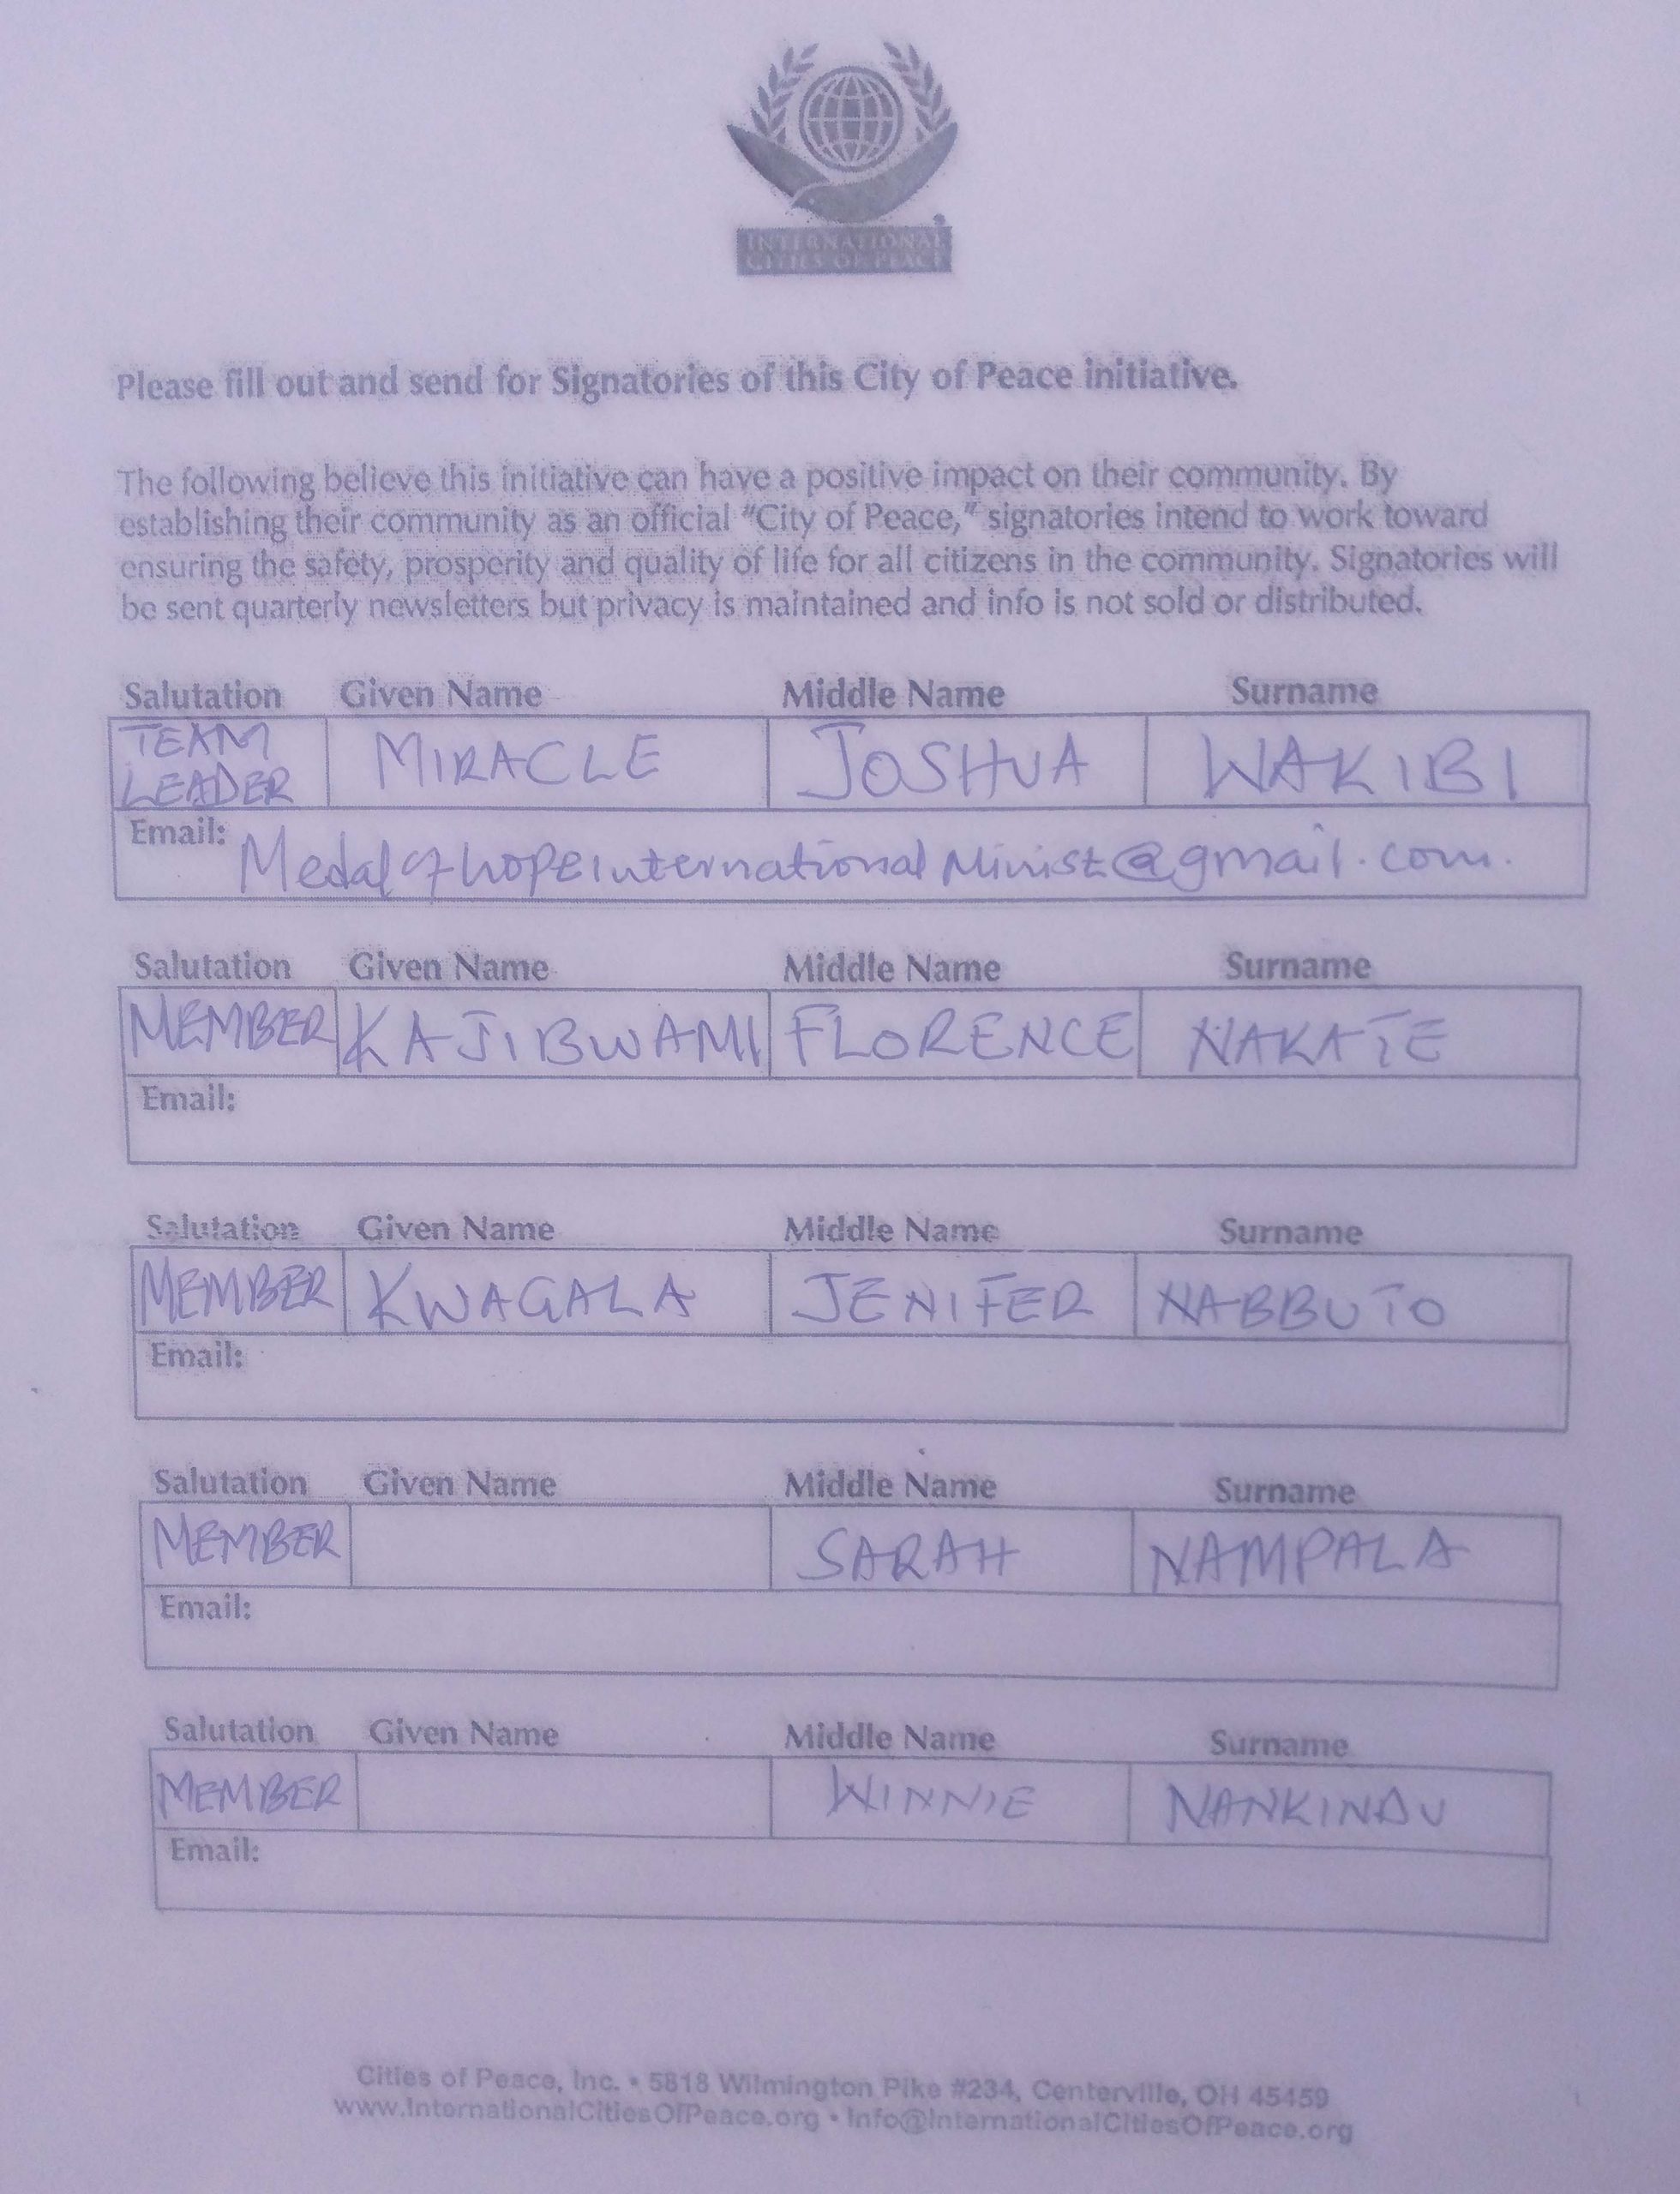 INTERNATIONAL
CITIES OF PEACE
Please fill out and send for Signatories of this City of Peace initiative.
The following believe this initiative can have a positive impact on their community. By
establishing their community as an official "City of Peace," signatories intend to work toward
ensuring the safety, prosperity and quality of life for all citizens in the community. Signatories will
be sent quarterly newsletters but privacy is maintained and info is not sold or distributed.
Salutation Given Name Middle Name Surname
TEAM LEADER MIRACLE JOSHUA WAKIBI
Email: MedalofhopeInternationalMinist@gmail.com.
Salutation Given Name Middle Name Surname
MEMBER KAJIBWAMI FLORENCE NAKATE
Email:
Salutation Given Name Middle Name Surname
MEMBER KWAGALA JENIFER NABBUTO
Email:
Salutation Given Name Middle Name Surname
MEMBER SARAH NAMPALA
Email:
Salutation Given Name Middle Name Surname
MEMBER WINNIE NANKINDU
Email:
Cities of Peace, Inc. • 5818 Wilmington Pike #234, Centerville, OH 45459
www.InternationalCitiesOfPeace.org • Info@InternationalCitiesOfPeace.org